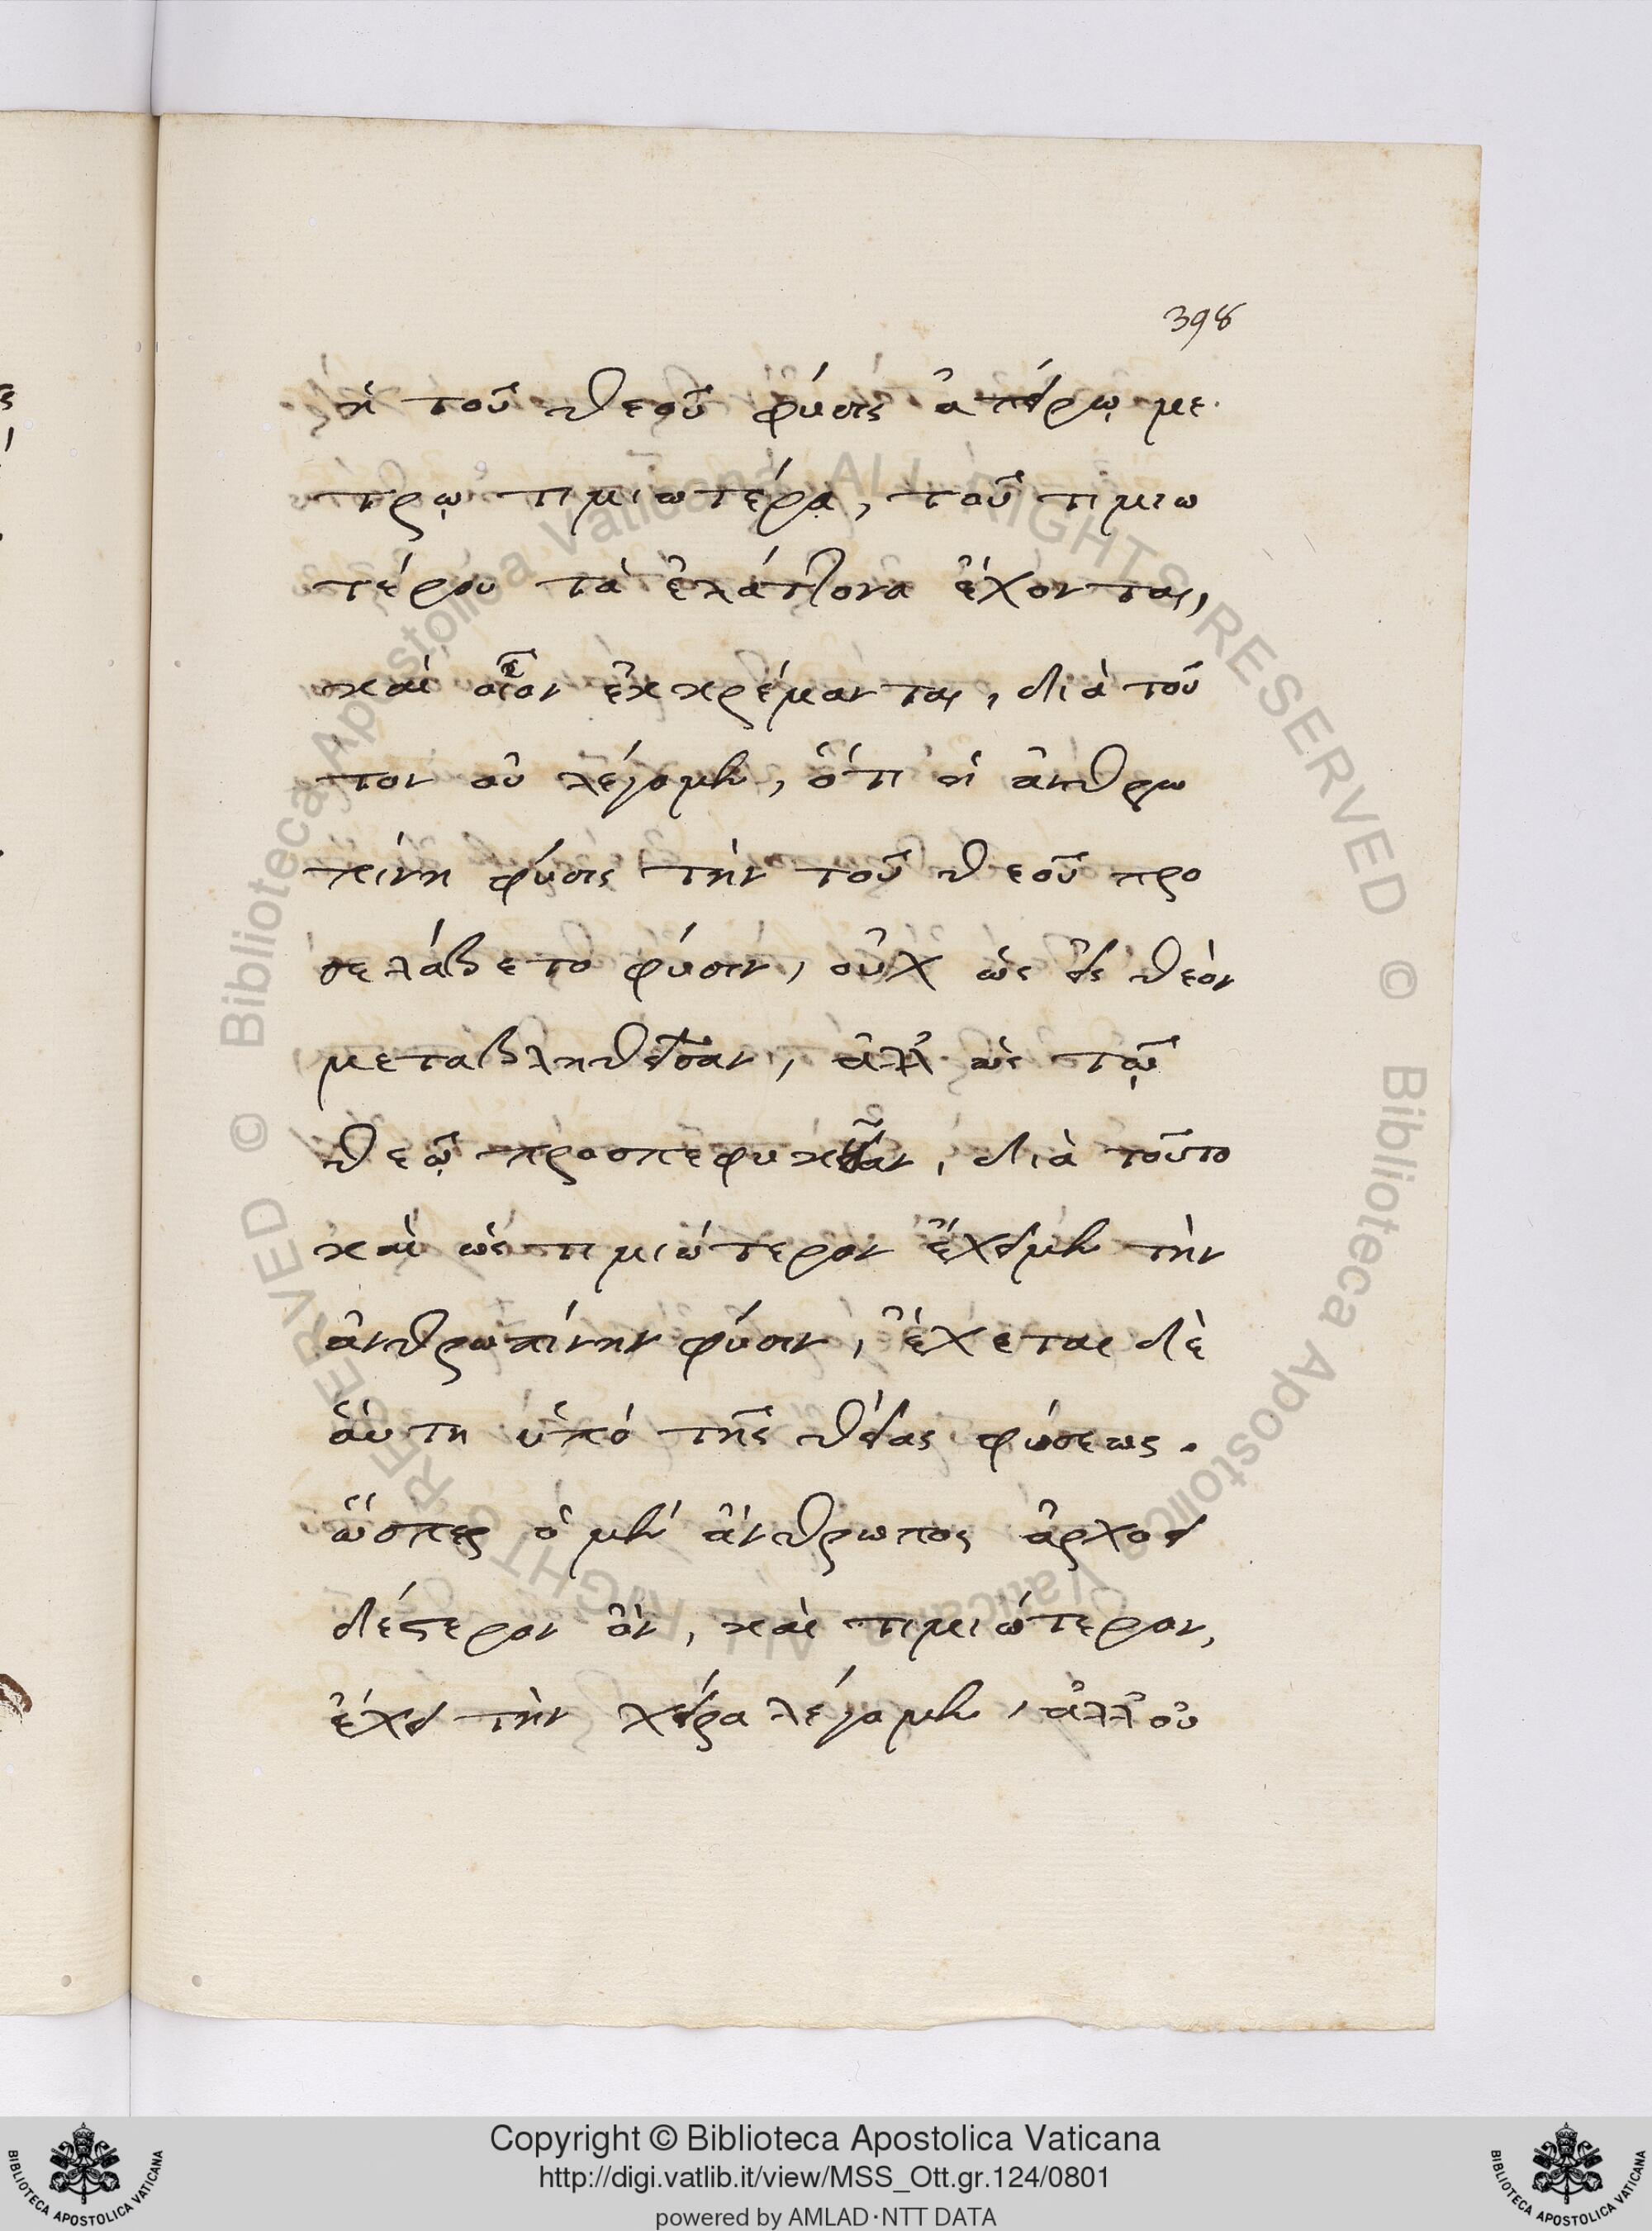 398
ἡ τοῦ θεοῦ φύσις ἀπείρῳ με
τρῳ τιμιωτέρα, τοῦ τιμιω
τέρου τὰ ἐλάττονα ἔχονται,
καὶ οἷον ἐκκρέμανται, διὰ τοῦ
τον οὐ λέγομεν, ὅτι ἡ ἀνθρω
πίνη φύσις τὴν τοῦ θεοῦ προ
σελάβετο φύσιν, οὐχ ὡς εἰς θεὸν
μεταβληθεῖσαν, ἀλλ' ὡς τῷ
θεῷ προσπεφυκυῖαν, διὰ τοῦτο
καὶ ὡς τιμιώτερον ἔχειμεν τὴν
ἀνθρωπίνην φύσιν, ἔχεται δὲ
ἁύτη ὑπό τῆς θείας φύσεως.
ὥσπερ ὁ μὲν ἄνθρωπος ἀρχοει
δέστερον ὂν, καὶ τιμιώτερον,
ἔχει τὴν χεῖρα λέγομεν, ἀλλ' οὐ
Copyright © Biblioteca Apostolica Vaticana
http://digi.vatlib.it/view/MSS_Ott.gr.124/0801
powered by AMLAD·NTT DATA
© Biblioteca Apostolica Vaticana ALL RIGHTS RESERVED
© Biblioteca Apostolica Vaticana ALL RIGHTS RESERVED
BIBLIOTECA APOSTOLICA VATICANA
BIBLIOTECA APOSTOLICA VATICANA